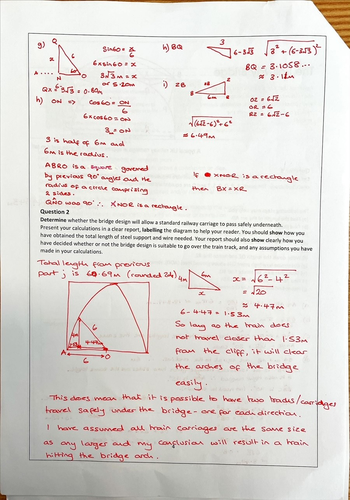 g) Q
x 6
60°
A.... N O
sin60 = x/6
6 x sin60 = x
3√3 m = x
or 5.20m
QX = 6 - 3√3 = 0.80m
h) ON => cos60 = ON/6
6 x cos60 = ON
3 = ON
3 is half of 6m and
6m is the radius.
ABRO is a square governed
by previous 90° angles and the
radius of a circle comprising
2 sides.
QNO was 90° ∴ XNOR is a rectangle.
h) BQ
3
6-3√3
√3² + (6-3√3)²
BQ = 3.1058...
≈ 3.11m
i) ZB
6m
OZ = 6√2
OR = 6
RZ = 6√2 - 6
√(6√2-6)² + 6²
≈ 6.49m
If XNOR is a rectangle
then BX = XR
Question 2
Determine whether the bridge design will allow a standard railway carriage to pass safely underneath.
Present your calculations in a clear report, labelling the diagram to help your reader. You should show how you
have obtained the total length of steel support and wire needed. Your report should also show clearly how you
have decided whether or not the bridge design is suitable to go over the train track, and any assumptions you have
made in your calculations.
Total length from previous
part j is 68.69m (rounded 2d)
4m 6m
x
x = √6² - 4²
= √20
≈ 4.47m
6 - 4.47 = 1.53m
So long as the train does
not travel closer than 1.53m
from the cliff, it will clear
the arches of the bridge
easily.
4m 6
4.47m
A O
6
This does mean that it is possible to have two tracks/carriages
travel safely under the bridge - one for each direction.
I have assumed all train carriages are the same size
as any larger and my conclusion will result in a train
hitting the bridge arch.